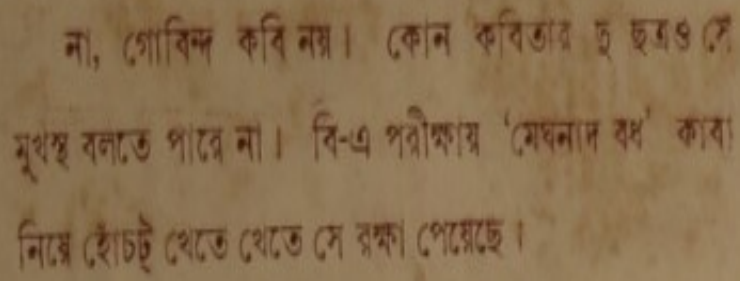 না, গোবিন্দ কবি নয়। কোন কবিতার দু ছত্রও সে
মুখস্থ বলতে পারে না। বি-এ পরীক্ষায় ‘মেঘনাদ বধ’ কাব্য
নিয়ে হোঁচট্ খেতে খেতে সে রক্ষা পেয়েছে।